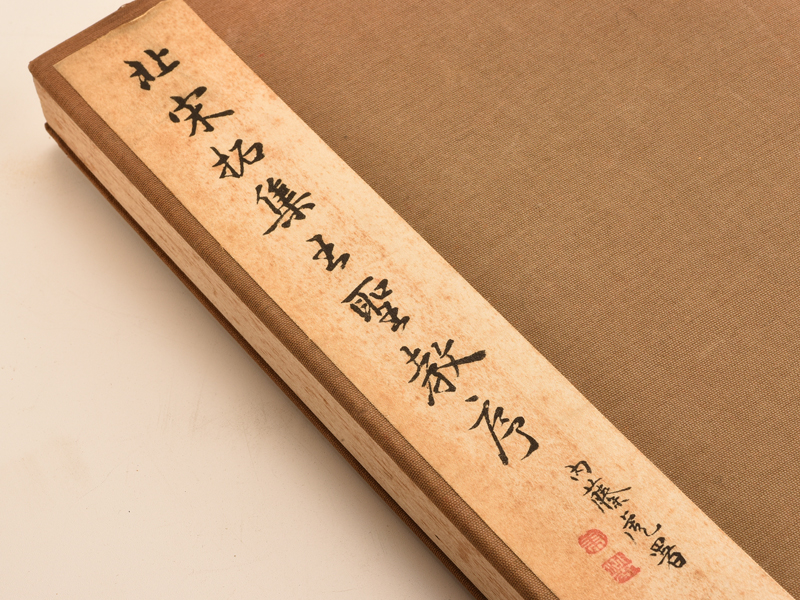 北宋拓集王聖教序
内藤虎署